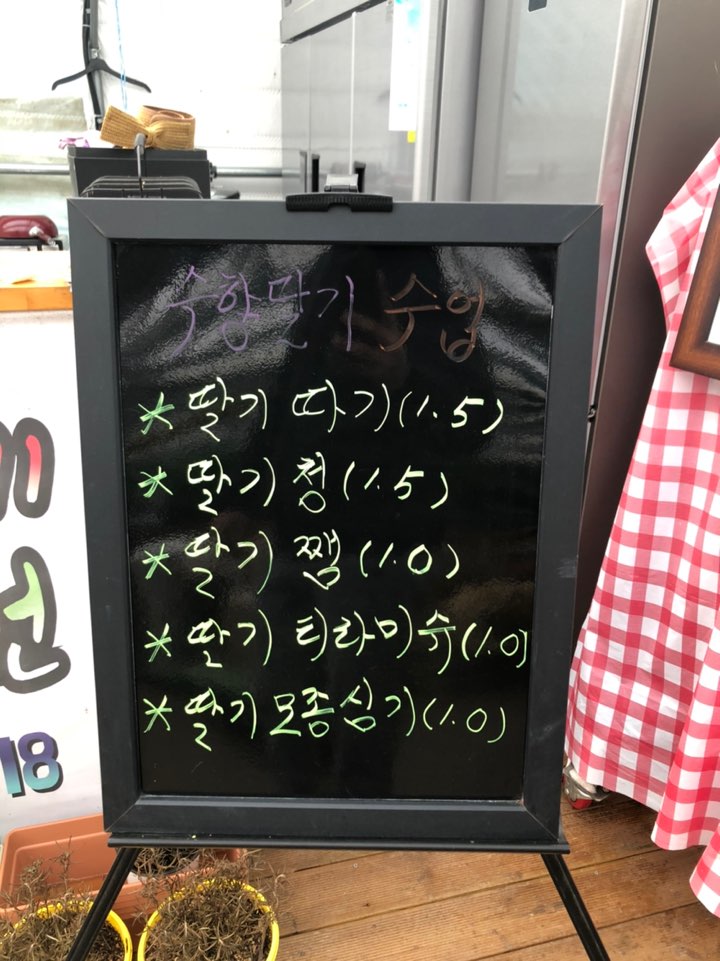 수향딸기 수업
* 딸기 따기(1.5)
* 딸기 청(1.5)
* 딸기 쨈(1.0)
* 딸기 티라미슈(1.0)
* 딸기 모종심기(1.0)
18